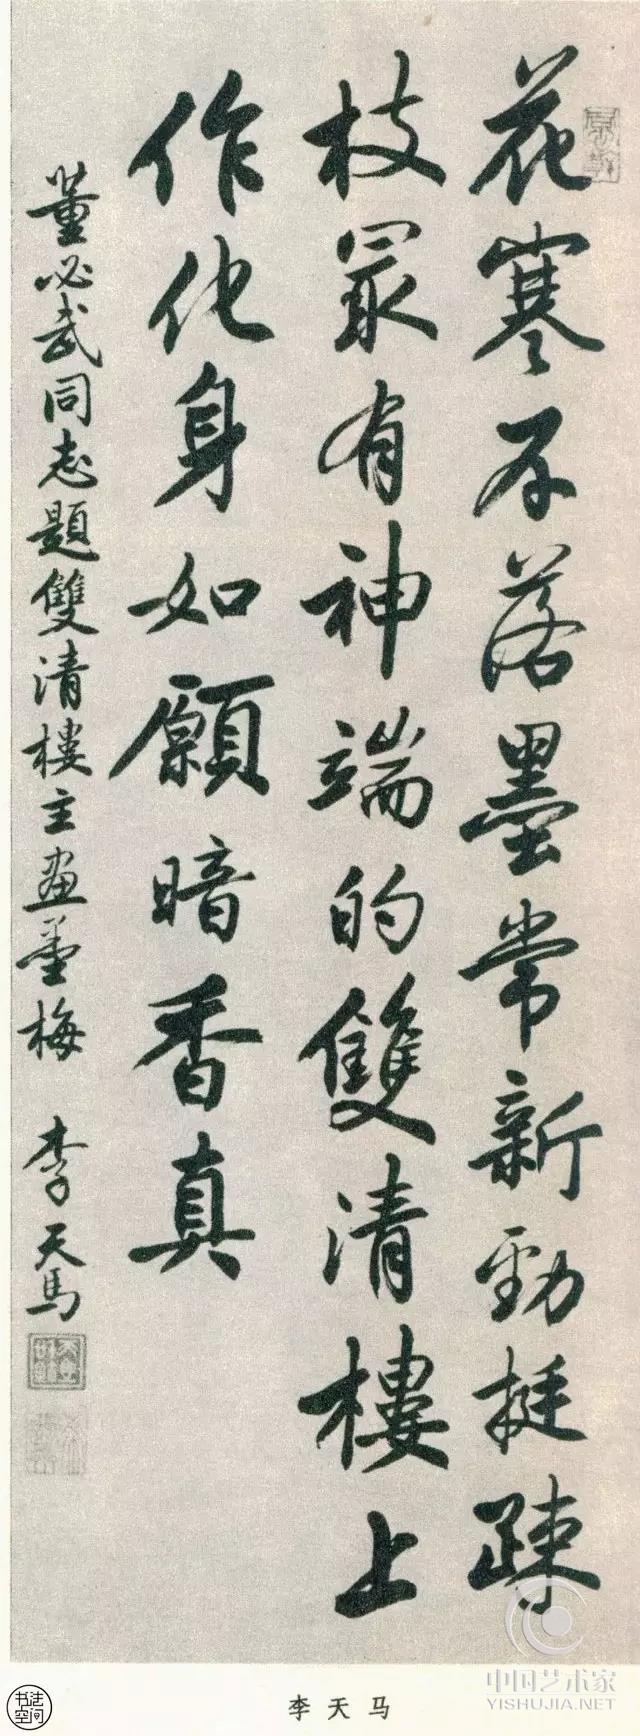 花寒不落墨常新勁挺疎
枝冣有神端的雙清樓上
作化身如願暗香真
董必武同志題雙清樓主畫墨梅 李天馬
李天马
书法空间
中国艺术家
YISHUJIA.NET